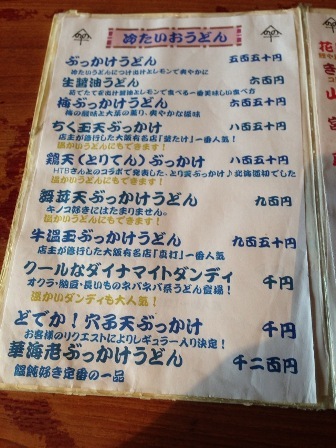 冷たいおうどん
ぶっかけうどん 五百五十円
冷たいうどんにつけ出汁とレモンで爽やかに
生醤油うどん 六百円
茹でたてを出汁醤油とレモンで食べる一番美味しい食べ方
梅ぶっかけうどん 六百五十円
梅の酸味と大葉の薫り、爽やかな風味
ちく玉天ぶっかけ 八百五十円
店主が修行した大阪有名店「釜たけ」一番人気!
温かいうどんにもできます!
鶏天(とりてん)ぶっかけ 八百五十円
HTBさんとのコラボで発表した、とり天ぶっかけ♪北海道初でした
温かいうどんにもできます!
舞茸天ぶっかけうどん 九百円
キノコ好きにはたまりません。
温かいうどんにもできます!
牛温玉ぶっかけうどん 九百五十円
店主が修行した大阪有名店「真打」一番人気
クールなダイナマイトダンディ 千円
オクラ・納豆・長いものネバネバ系うどん登場!
温かいダンディも大人気!
どでか!穴子天ぶっかけ 千円
お客様のリクエストによりレギュラー入り決定!
華海老ぶっかけうどん 千二百円
饂飩好き定番の一品
花
き
山